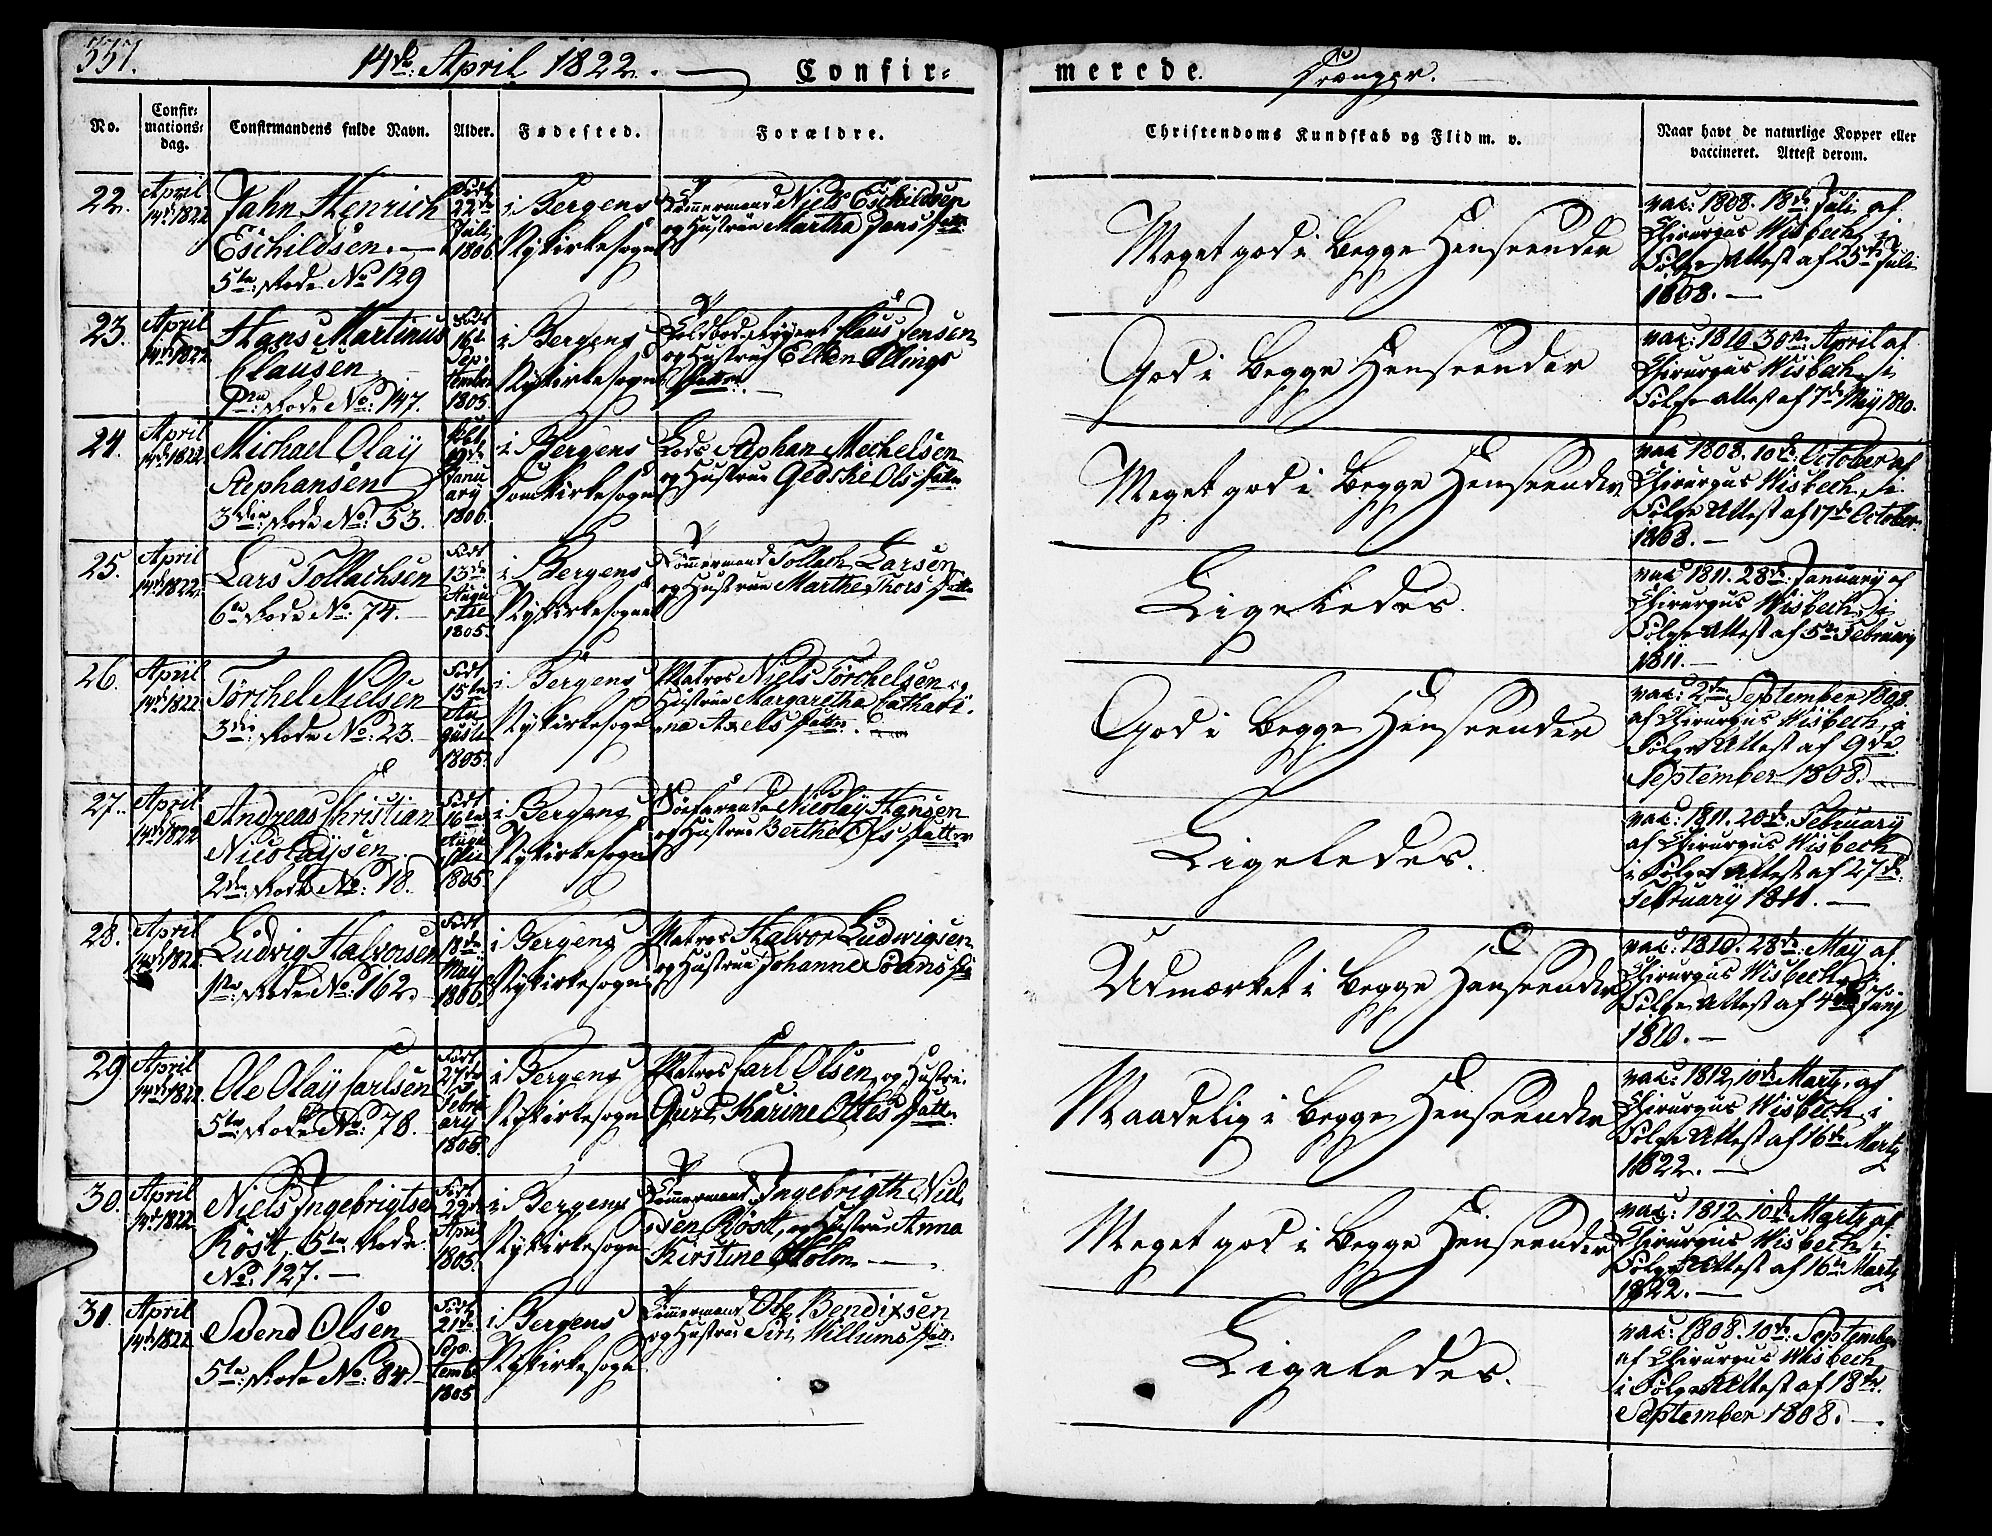 337.
14de April 1822.
Confir=
merede.
Drenger.
No.
Confir=
mations=
dag.
Confirmandens fulde Navn.
Alder.
Fødested.
Forældre.
Christendoms Kundskab og Flid m. v.
Naar havt de naturlige Kopper eller
vaccineret. Attest derom.
22.
April
14de 1822
Jahn Henrich
Eschildsen.
5te Rode No 129
Født
22de
Juli
1806
i Bergens
Nykirkesogn
Tømmermand Niels Eschildsen
og Hustrue Martha Jans Datter
Meget god i begge Henseender
vac: 1808. 18de Juli af
Chirurgus Wisbech, i
Følge Attest af 25de Juli
1808.
23.
April
14de 1822
Hans Martinus
Clausen
No: 147.
Født
16de
Sep-
tember
1805.
i Bergens
Nykirkesogn
Claus Jensen
og Hustrue Ellen Ellings
Datter.
God i begge Henseender
vac: 1810 30te April af
Chirurgus Wisbech, i
Følge Attest af 7de May 1810.
24.
April
14de 1822
Michael Olay
Stephansen
3die Rode No: 53.
Født
19de
Janu
ary
1806.
i Bergens
Domkirkesogn
Lods Stephan Mechelsen
og Hustrue Gedske Ols Datter
Meget god i begge Henseender
vac 1808. 10de October af
Chirurgus Wisbech, i
Følge Attest af 17de October
1808.
25.
April
14de 1822
Lars Tollachsen
6te Rode No: 74.
Født
13de
Augu
sti
1805.
i Bergens
Nykirkesogn
Tømmermand Tollach Larsen
og Hustrue Marthe Thors Datter
Ligeledes.
vac 1811. 28de January af
Chirurgus Wisbech, i
Følge Attest af 5te February
1811.
26.
April
14de 1822
Törchel Nielsen
3die Rode No: 23.
Født
15te
Au
gusti
1805.
i Bergens
Nykirkesogn
Matros Niels Törchelsen og
Hustrue Margaretha Cathari-
na Axels Datter.
God i begge Henseender
vac: 2den September 1808.
af Chirurgus Wisbech, i
Følge Attest af 9de
September 1808.
27.
April
14de 1822
Andreas Christian
Nicolaysen
2den Rode No: 18.
Født
16de
Augu
sti
1805.
i Bergens
Nykirkesogn
Søefarende Nicolay Hansen
og Hustrue Berthe Ols Datter
Ligeledes.
vac: 1811. 20de February
af Chirurgus Wisbech
i Følge Attest af 27de
February 1811.
28.
April
14de 1822
Ludvig Halvorsen
Rode No: 162.
Født
18de
May
1806
i Bergens
Nykirkesogn
Matros Halvor Ludwigsen
og Hustrue Johanne
Udmærket i begge Henseender
vac: 1810. 28de May af
Chirurgus Wisbech, i
Følge Attest af 4de Juny
1810.
29.
April
14de 1822.
Ole Olay Carlsen
5te Rode No: 78.
Født
27de
Febru
ary
1805.
i Bergens
Nykirkesogn
Matros Carl Olsen og Hustrue
Guri Karine Ottes Datter
Maadelig i begge Henseender
vac: 1812, 10de Marty, af
Chirurgus Wisbech, i
Følge Attest af 16de Marty
1822.
30.
April
14de 1822
Niels Ingebrigtsen
Röst, 5te Rode
No: 127.
Født
29de
April
1805.
i Bergens
Nykirkesogn
Tømmermand Ingebrigth Niel
sen Röst, og Hustrue Anna
Kirstine Holm
Meget god i begge Henseender
vac: 1812, 10de Marty af
Chirurgus Wisbech, i
Følge Attest af 16de Marty
1822.
31.
April
14de 1822
Svend Olsen
5te Rode No: 84.
Født
21de
Sep-
temb.
1805
i Bergens
Nykirkesogn
Tømmermand Ole Bendixsen
og Hustrue Siri Willums Datter
Ligeledes.
vac: 1808. 10de September
af Chirurgus Wisbech,
i Følge Attest af 18de
September 1808.